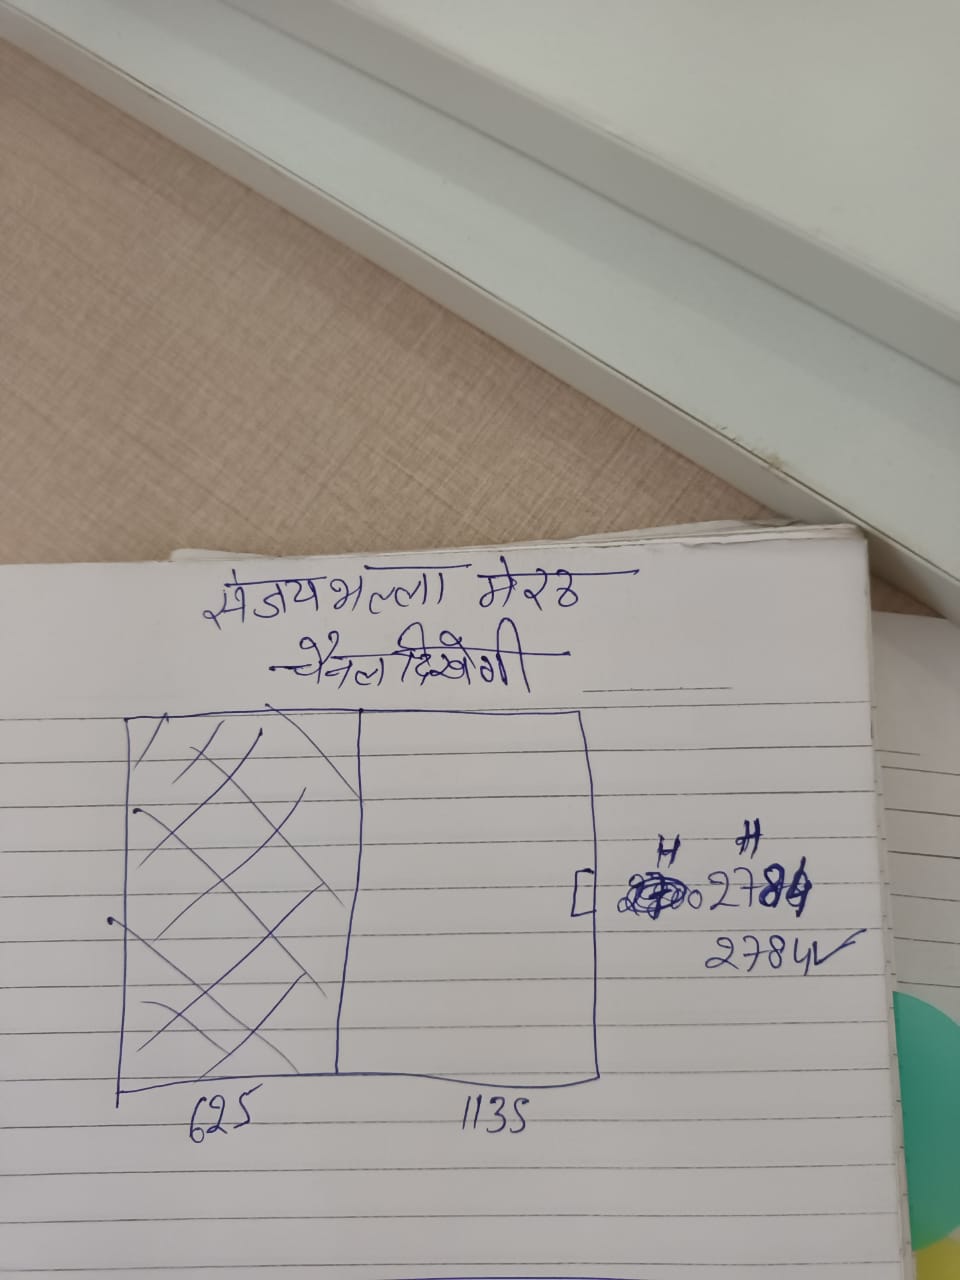 संजय भल्ला मेरठ
चैनल दिखेगी
H H
2784
2784✓
625 1135